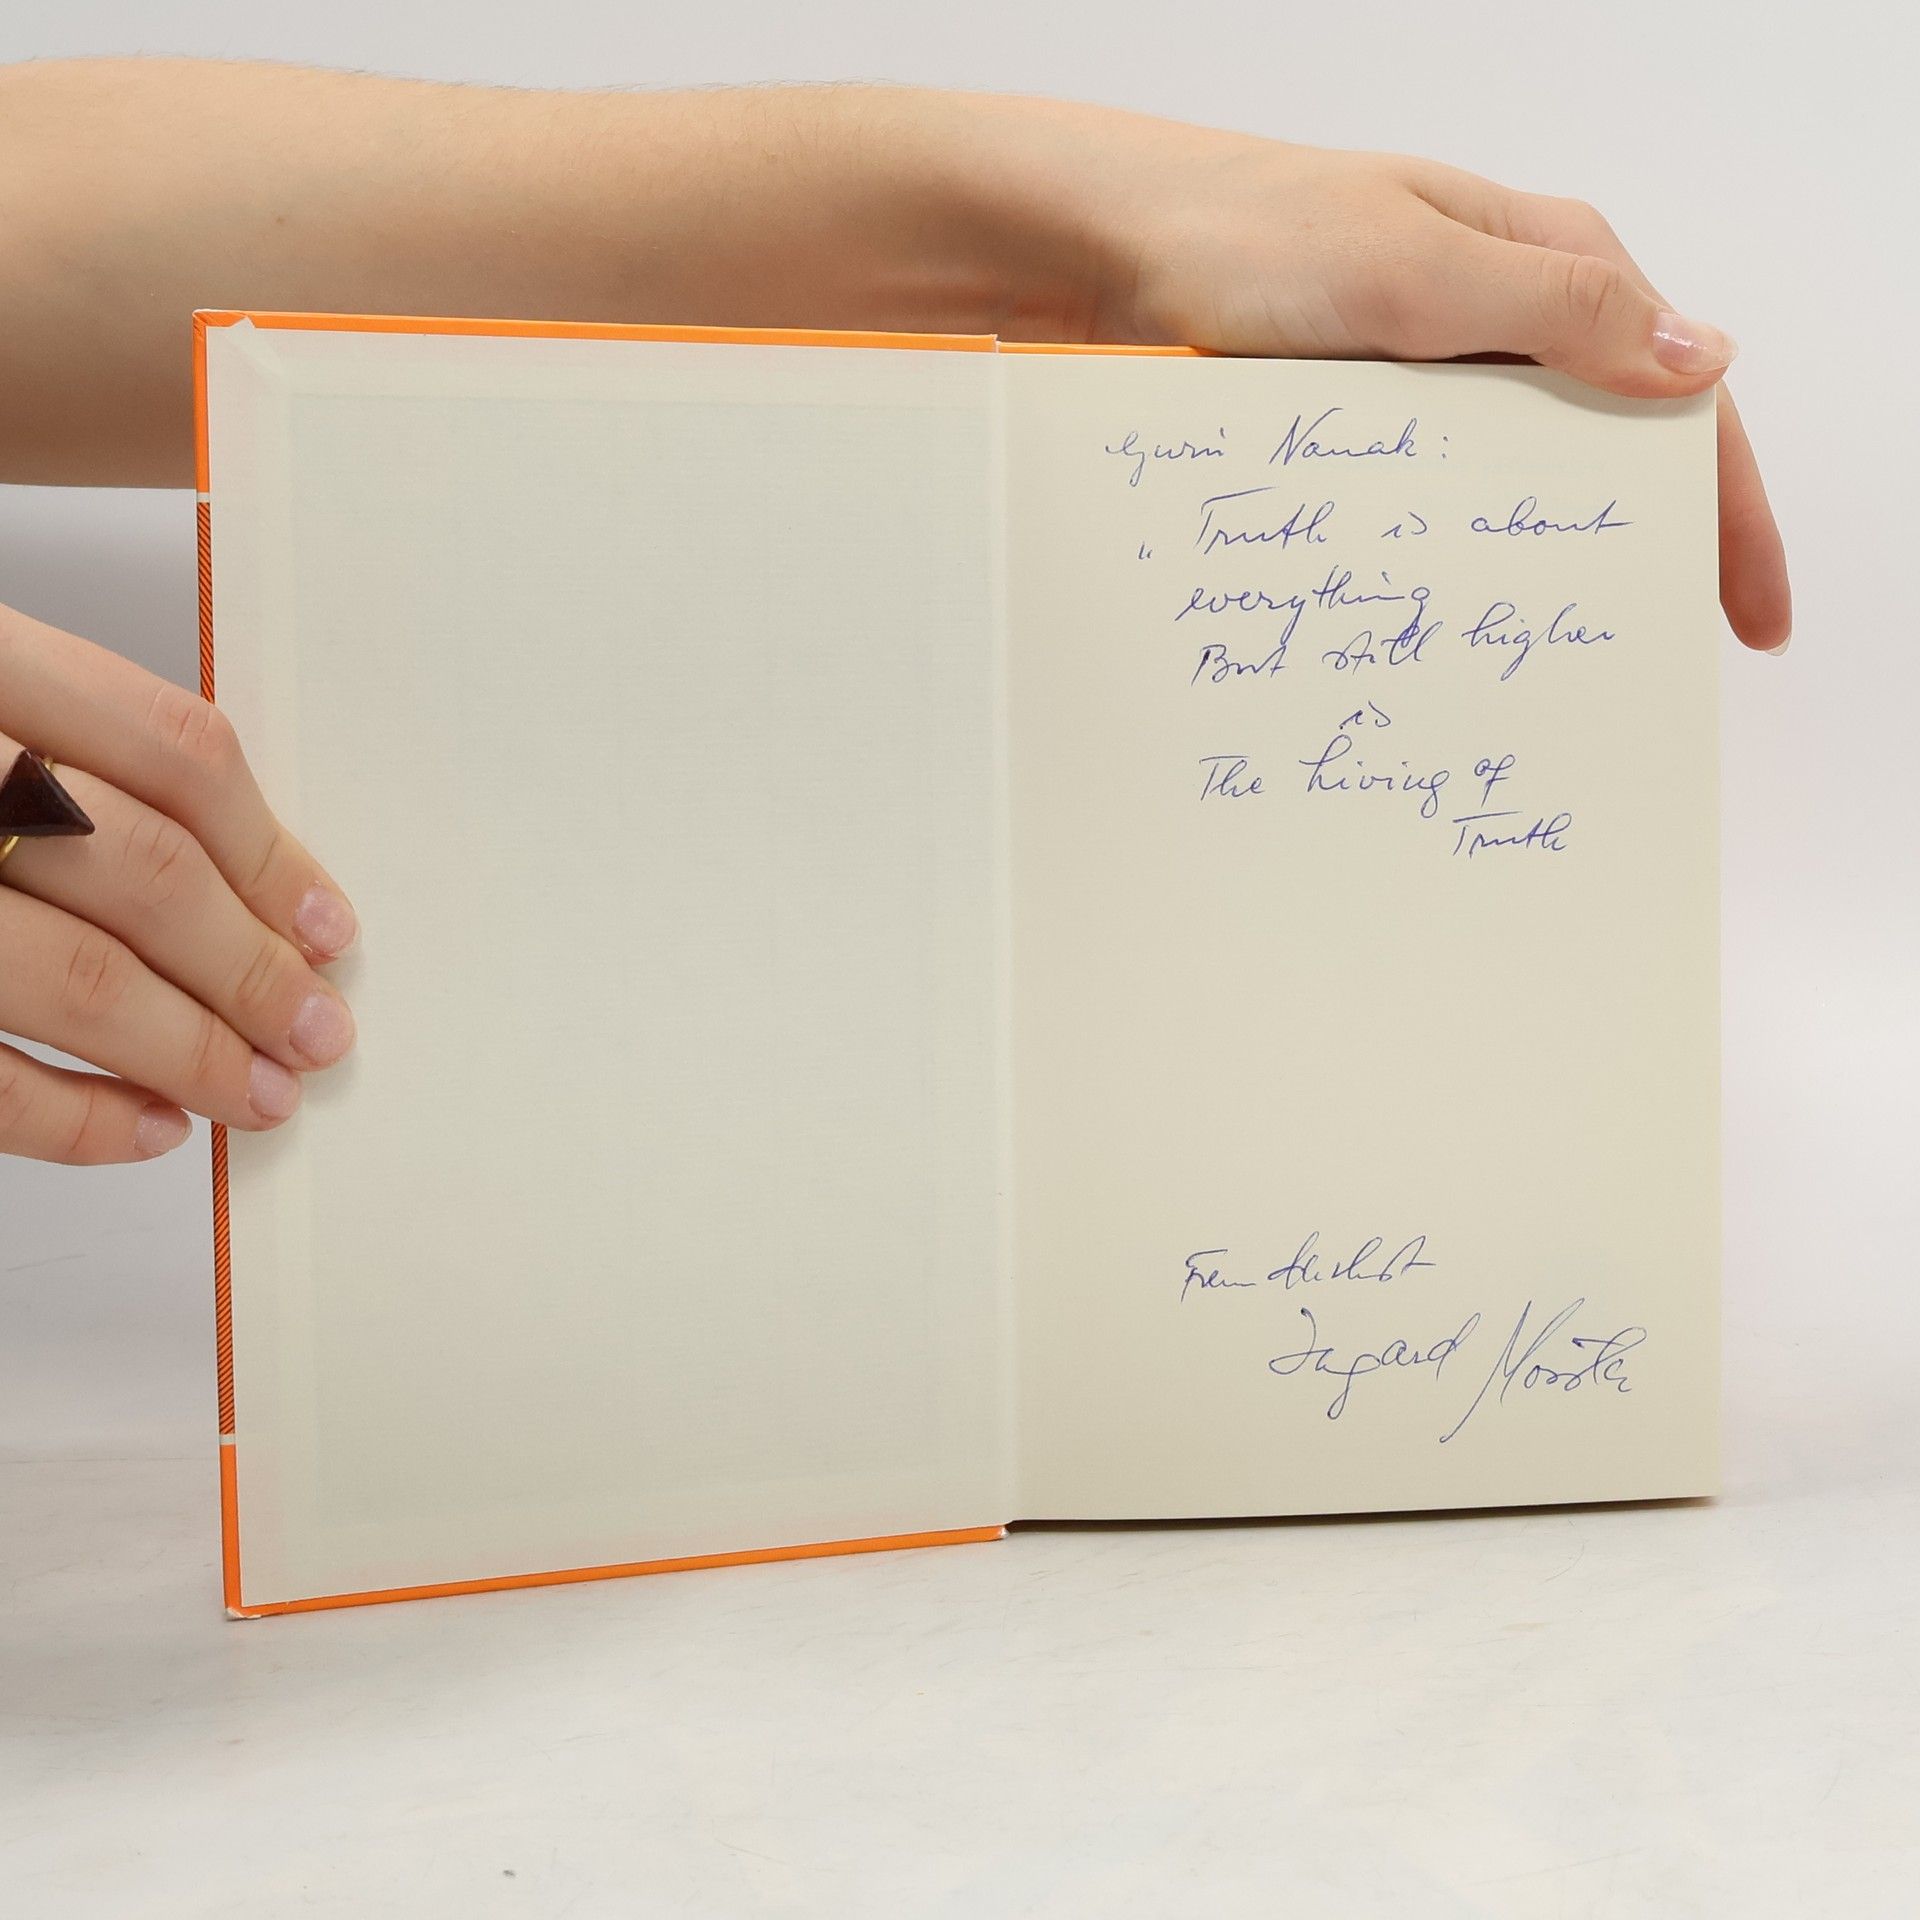 Guru Nanak:
„Truth is about
everything
But still higher
is
The Living of
Truth
Ingard